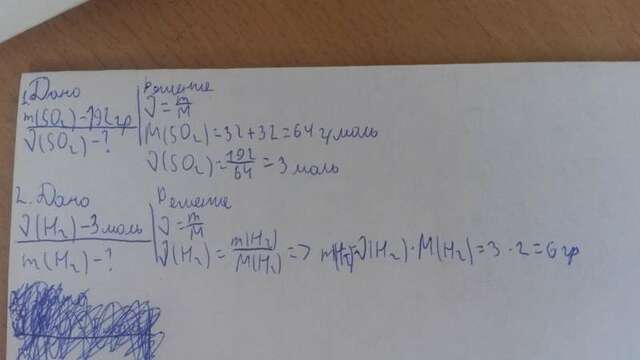 1. Дано
m(SO₂) - 192 гр
ν(SO₂) - ?
Решение
ν = m/M
M(SO₂) = 32 + 32 = 64 г/моль
ν(SO₂) = 192/64 = 3 моль
2. Дано
ν(H₂) - 3 моль
m(H₂) - ?
Решение
ν = m/M
ν(H₂) = m(H₂)/M(H₂) => m(H₂) = ν(H₂) · M(H₂) = 3 · 2 = 6 гр